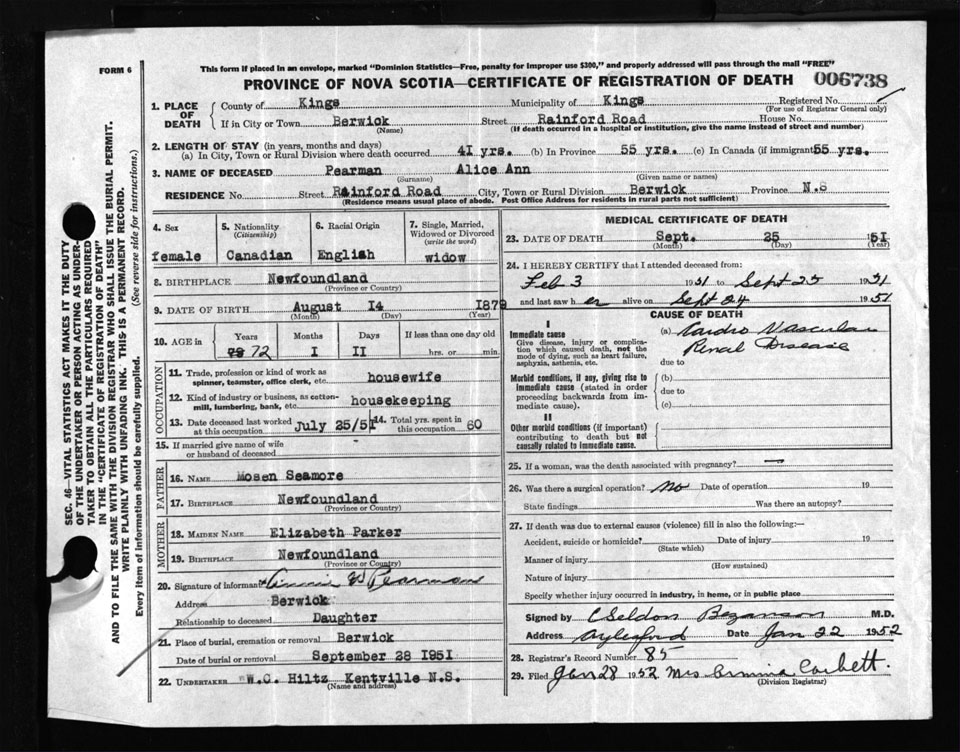 This form if placed in an envelope, marked "Dominion Statistics—Free, penalty for improper use $300," and properly addressed will pass through the mail "FREE"
FORM 6
PROVINCE OF NOVA SCOTIA—CERTIFICATE OF REGISTRATION OF DEATH 006738
1. PLACE OF DEATH
County of Kings Municipality of Kings Registered No.
(For use of Registrar General only)
If in City or Town Berwick Street Rainford Road House No.
(Name) (If death occurred in a hospital or institution, give the name instead of street and number)
2. LENGTH OF STAY (in years, months and days)
(a) In City, Town or Rural Division where death occurred 41 yrs. (b) In Province 55 yrs. (c) In Canada (if immigrant) 55 yrs.
3. NAME OF DECEASED Pearman Alice Ann
(Surname) (Given name or names)
RESIDENCE No. Street Rainford Road City, Town or Rural Division Berwick Province N.S
(Residence means usual place of abode. Post Office Address for residents in rural parts not sufficient)
4. Sex
female
5. Nationality
(Citizenship)
Canadian
6. Racial Origin
English
7. Single, Married,
Widowed or Divorced
(write the word)
widow
8. BIRTHPLACE Newfoundland
(Province or Country)
9. DATE OF BIRTH August 14 1879
(Month) (Day) (Year)
10. AGE in
Years Months Days If less than one day old
72 I II hrs. or min.
OCCUPATION
11. Trade, profession or kind of work as
spinner, teamster, office clerk, etc. housewife
12. Kind of industry or business, as cotton-
mill, lumbering, bank, etc. housekeeping
13. Date deceased last worked
at this occupation July 25/51
14. Total yrs. spent in
this occupation 60
15. If married give name of wife
or husband of deceased
FATHER
16. NAME Mosen Seamore
17. BIRTHPLACE Newfoundland
(Province or Country)
MOTHER
18. MAIDEN NAME Elizabeth Parker
19. BIRTHPLACE Newfoundland
(Province or Country)
20. Signature of Informant Pearman
Address Berwick
Relationship to deceased Daughter
21. Place of burial, cremation or removal Berwick
Date of burial or removal September 28 1951
22. UNDERTAKER W.C. Hiltz Kentville N.S.
(Name and address)
MEDICAL CERTIFICATE OF DEATH
23. DATE OF DEATH Sept. 25 51
(Month) (Day) (Year)
24. I HEREBY CERTIFY that I attended deceased from:
Feb 3 1951 to Sept 25 1951
and last saw her alive on Sept 24 1951
CAUSE OF DEATH
I
Immediate cause
Give disease, injury or complica-
tion which caused death, not the
mode of dying, such as heart failure,
asphyxia, asthenia, etc.
(a) Cardio Vascular
Renal Disease
due to
Morbid conditions, if any, giving rise to
immediate cause (stated in order
proceeding backwards from im-
mediate cause).
(b)
due to
(c)
II
Other morbid conditions (if important)
contributing to death but not
causally related to immediate cause.
25. If a woman, was the death associated with pregnancy? —
26. Was there a surgical operation? no Date of operation 19
State findings Was there an autopsy?
27. If death was due to external causes (violence) fill in also the following:—
Accident, suicide or homicide? Date of injury 19
(State which)
Manner of injury
(How sustained)
Nature of injury
Specify whether injury occurred in industry, in home, or in public place
Signed by Seldon Bezanson M.D.
Address Aylesford Date Jan 22 1952
28. Registrar's Record Number 85
29. Filed Jan 28 1952 Mrs Ermina Corbett.
(Division Registrar)
SEC. 46—VITAL STATISTICS ACT MAKES IT THE DUTY
OF THE UNDERTAKER OR PERSON ACTING AS UNDER-
TAKER TO OBTAIN ALL THE PARTICULARS REQUIRED
IN THE "CERTIFICATE OF REGISTRATION OF DEATH"
AND TO FILE THE SAME WITH THE DIVISION REGISTRAR WHO SHALL ISSUE THE BURIAL PERMIT.
WRITE PLAINLY WITH UNFADING INK. THIS IS A PERMANENT RECORD.
Every item of information should be carefully supplied. (See reverse side for instructions.)